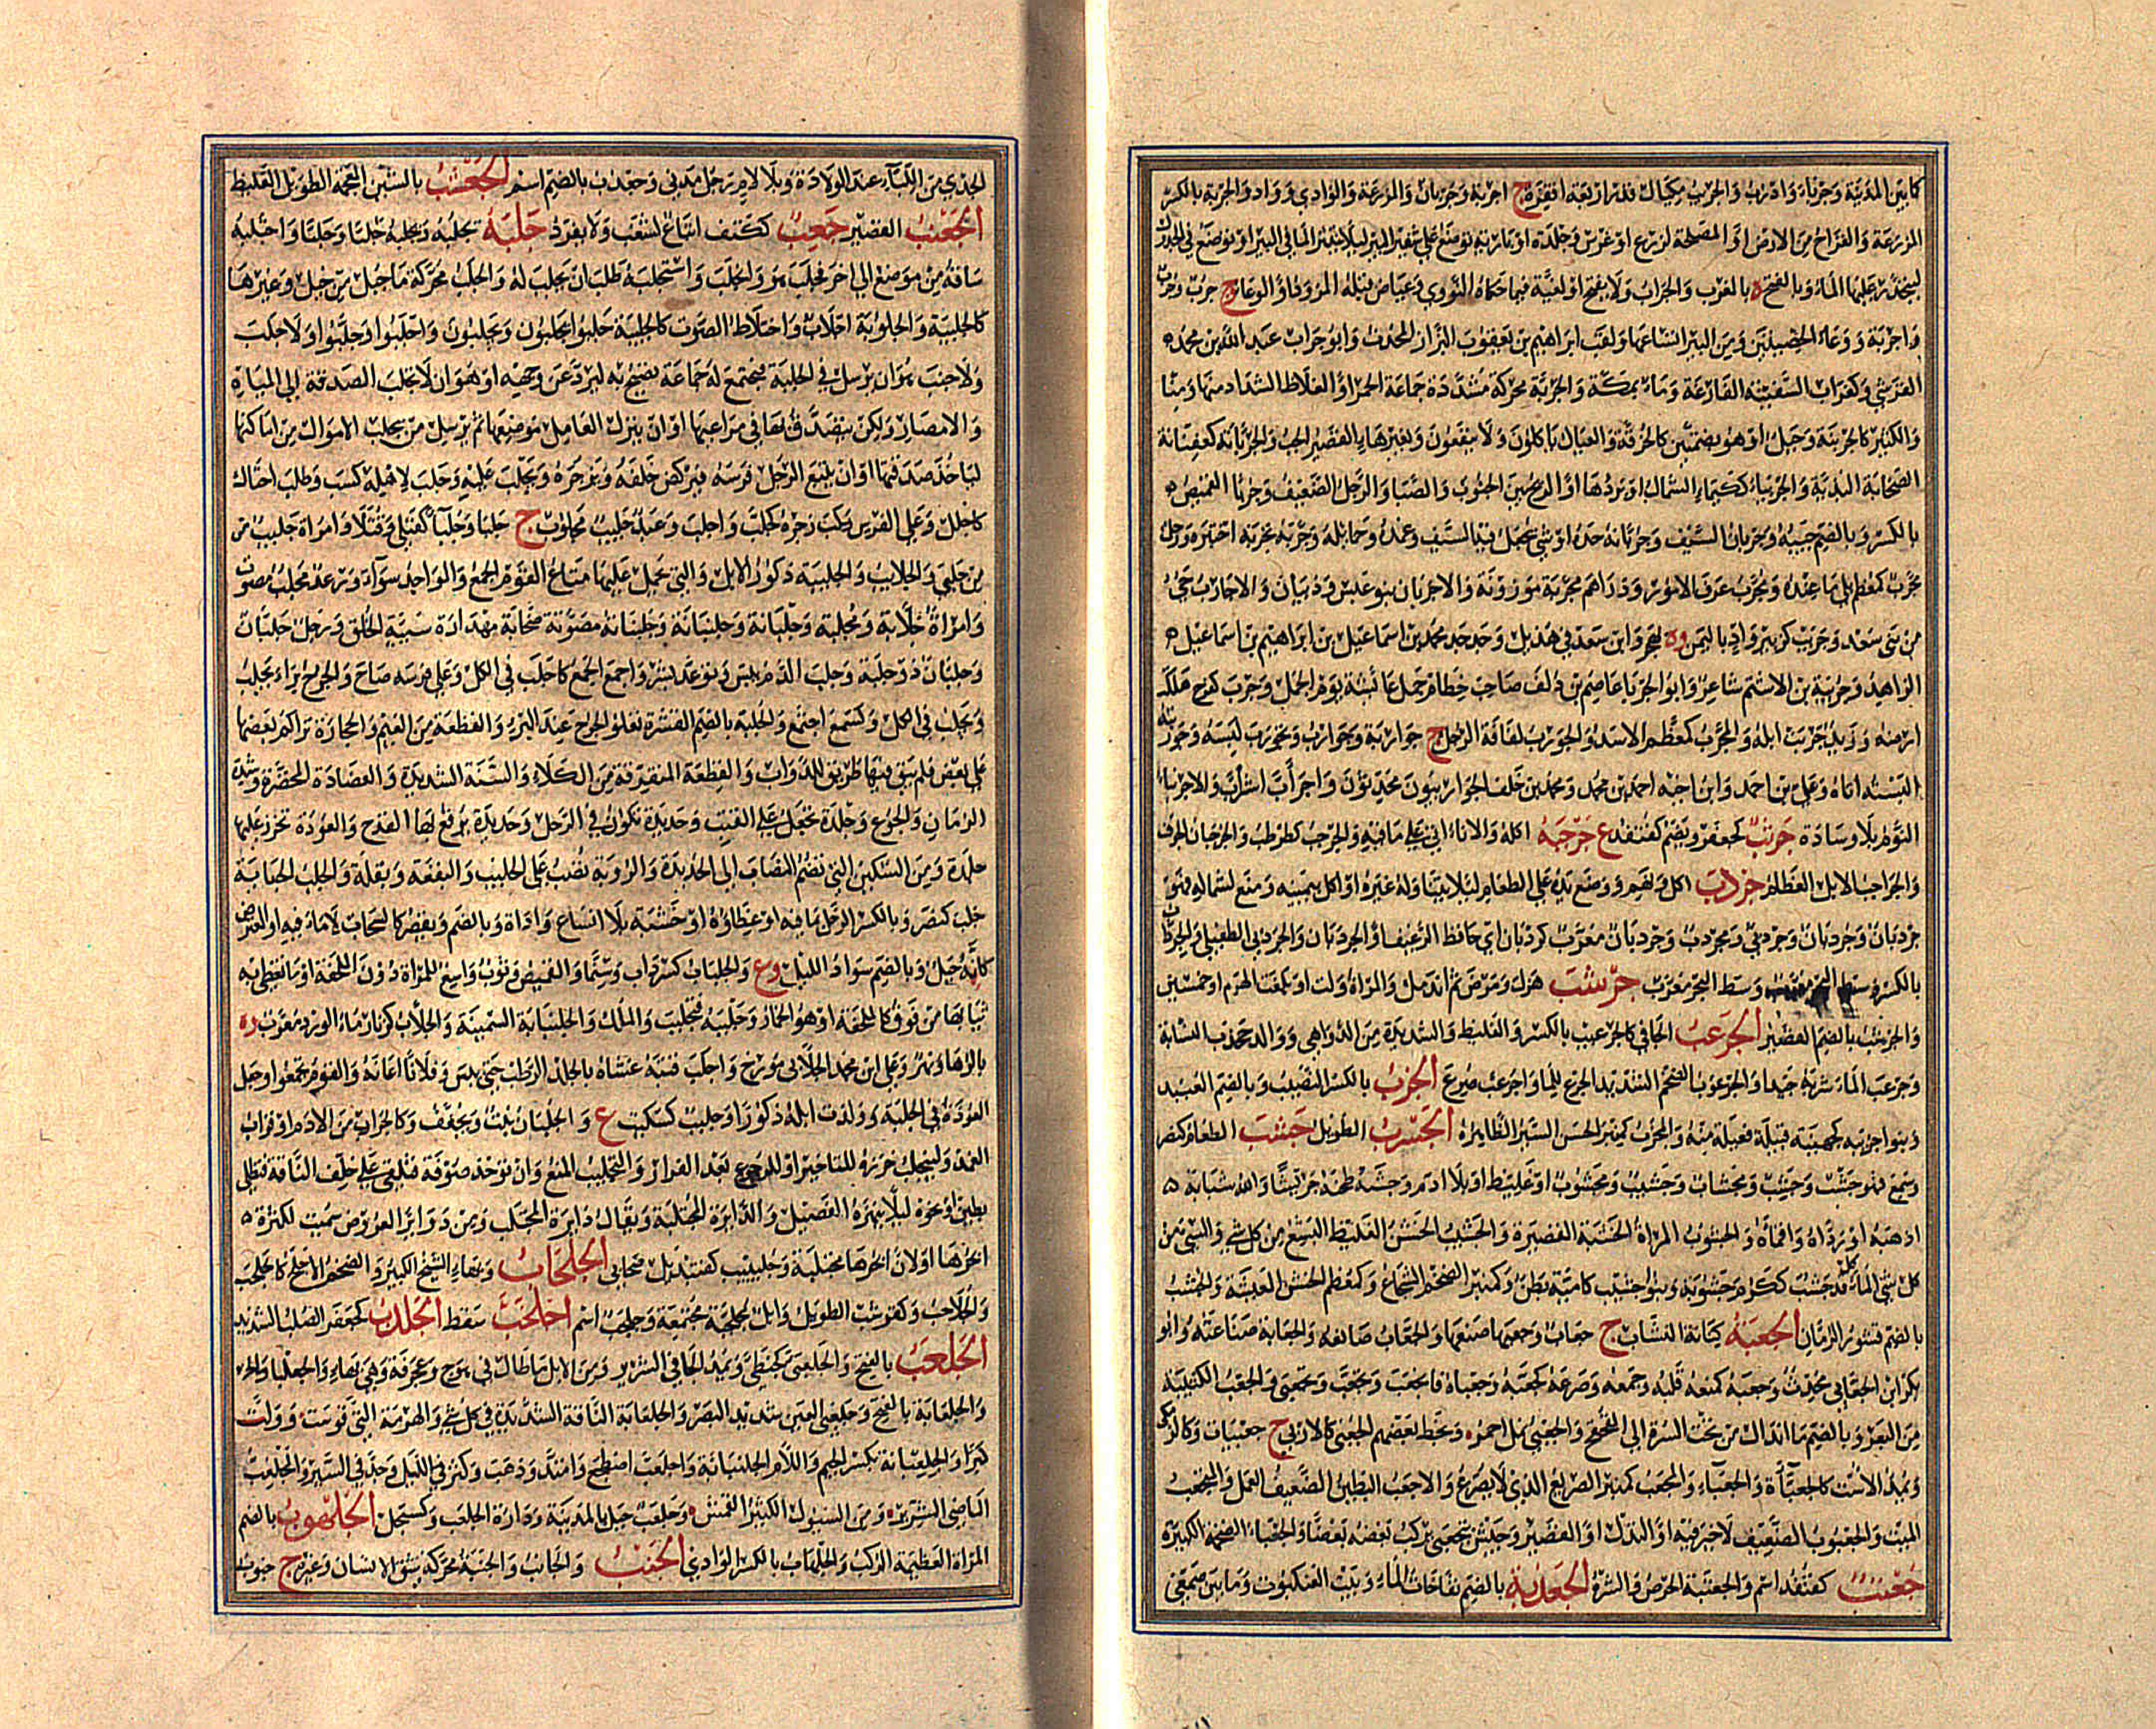 كما بين المدينة وجرباء واذرح والجريب مكيال قدر اربعة اقفزة ج اجربة وجربان والمزرعة والوادي وواد والجربة بالكسر
المزرعة والقراح من الارض او المصلحة لزرع او غرس وجلدة او بارية توضع على شفير البئر ليلا ينتثر الماء في البئر او توضع في الجدول
ليتحدر عليها الماء وبالفتح ة بالمغرب والجراب ولا يفتح او لغية فيما حكاه النووي وعياض قبله المزود او الوعاء ج جرب وجرب
واجربة ووعاء الخصيتين ومن البئر اتساعها ولقب ابراهيم بن يعقوب البزاز المحدث وابو جراب عبد الله بن محمد
القرشي وكغراب السفينة الفارغة وماء بمكة والجربة محركة مشددة جماعة الحمر او الغلاظ الشداد منها ومنا
والكثير كالجرنبة وجبل او هو بضمتين كالحزقة والعيال ياكلون ولا ينفعون وبغير هاء القصير الخب والجربانة كعفتانة
الصخابة البذية والجربياء ككيمياء الشمال او بردها او الريح بين الجنوب والصبا والرجل الضعيف وجربا القميص
بالكسر وبالضم جيبه وجربان السيف وجربانه حده او شي يجعل فيه السيف وغمده وحمايله وجربه تجربة اختبره ورجل
مجرب كمعظم بلي ما عنده ومجرب عرف الامور ودراهم مجربة موزونة والاجربان بنو عبس وذبيان والاجارب حي
من بني سعد وجريب كزبير واد باليمن وة بهجر وابن سعد في هذيل وجد جد محمد بن اسماعيل بن ابراهيم بن اسماعيل
الزاهد وجريبة بن الاشيم شاعر وابو الجربا عاصم بن دلف صاحب خطام جمل عائشة يوم الجمل وجرب كفرح هلكت
ارضه وزيد جربت ابله والمجرب كمعظم الاسد والجورب لفافة الرجل ج جواربة وجوارب وتجورب لبسه وجوربته
البسته اياه وعلي بن احمد وابن اخيه احمد بن محمد ومحمد بن خلف الجواربيون محدثون واجراب اشراب والاجرنباء
النوم بلا وسادة جرثب كجعفر ويضم كقنفذ ع جرجبه اكله والاناء اتى على ما فيه والجرجب كطرطب والجرجبان الجوف
والجراجب الابل العظام جردب اكل ونهم ووضع يده على الطعام ليلا يتناوله غيره او اكل بيمينه ومنع بشماله فهو
جردبان وجردبان وجردبي ومجردب وجردبان معرب كردبان اي حافظ الرغيف او الجردبان والجردبي الطفيلي والجرداب
بالكسر وسط البحر معرب جرشب هزل او مرض ثم اندمل والمراة ولت او بلغت الهرم او خمسين
والجرشب بالضم القصير الجرعب الجافي كالجرعيب بالكسر والغليظ والشديدة من الدواهي ووالد جحدب النسابة
وجرعب الماء شربه جيدا والجرعوب الضخم الشديد الجرع للماء واجرعب صرع الجزب بالكسر النصيب وبالضم العبيد
وبنو اجزنبه كجهينة قبيلة فعيلة منه والمجزب كمنبر الحسن السبر الظاهره الجسرب الطويل جشب الطعام كنصر
وسمع فهو جشب وجشيب ومجشاب وجشيب ومجشوب اي غليظ او بلا ادم وجشبه طحنه جريشا والله شبابة
اذهبه او رذاه واقماه والجشوب المراة الخشنة القصيرة والجشيب الخشن الغليظ البشع من كل شي والسيئ من
كل شي الماكل وقد جشب ككرم جشوبة وبنو جشيب كامية بطن وكمنبر الضخم الشجاع وكمعظم الخشن المعيشة والجشب
بالضم قشور الرمان الجعبة كنانة النشاب ج جعاب وجعبها صنعها والجعاب صانعها والجعابة صناعته وابو
بكر ابن الجعابي محدث وجعبه كمنعه قلبه وجمعه وصرعه كجعبه وجعباه فانجعب وتجعب وتجعبى والجعب الكثيبة
من البعر وبالضم ما اندال من تحت السرة الى القحقح والجعبي نمل احمر وبخط بعضهم الجعبى كالاربى ج جعبيات وكالزمكى
ويمد الاست كالجعباة والجعباء والمجعب كمنبر الصريع الذي لا يصرع والاجعب البطين الضعيف العمل والمنجعب
الميت والجعبوب الضعيف لا خير فيه او النذل او القصير وجيش يتجعبى يركب بعضه بعضا والجعباء الضخمة الكبيرة
جعتب كقنفذ اسم والجعتبة الحرص والشره الجعدبة بالضم نفاخات الماء وبيت العنكبوت وما بين صمغي
الجدي من اللبأ عند الولادة وبلا لام رجل مدني وجعدب بالضم اسم الجعشب بالشين المعجمة الطويل الغليظ
الجعنب القصير جغب ككتف اتباع لشغب ولا يفرد جلبه يجلبه ويجلبه جلبا وجلبا واجتلبه
ساقه من موضع الى اخر فجلب هو وانجلب واستجلبه طلب ان يجلب له والجلب محركة ما جلب من خيل وغيرها
كالجليبة والجلوبة اجلاب واختلاط الصوت كالجلبة جلبوا يجلبون ويجلبون واجلبوا وجلبوا ولا جلب
ولا جنب هو ان يرسل في الحلبة فيجتمع له جماعة يصيح به ليرد عن وجهه او هو ان لا يجلب الصدقة الى المياه
والامصار ولكن يتصدق بها في مراعيها او ان ينزل العامل موضعا ثم يرسل من يجلب الاموال من اماكنها
لياخذ صدقتها او ان يتبع الرجل فرسه فيركض خلفه ويزجره ويجلب عليه وجلب لاهله كسب وطلب احتال
كاجلب وعلى الفرس زجره كجلب واجلب وعبد جليب مجلوب ج جلبا وجلباء كقتلى وقتلاء وامراة جليب من
من جلبى وجلايب والجلوبة ذكور الابل والتي يحمل عليها متاع القوم الجمع والواحد سواء ورعد مجلب مصوت
وامراة جلابة ومجلبة وجلبانة وجلبنانة وجلبنانة مصوتة صخابة مهذارة سيئة الخلق ورجل جلبان
وجلبان ذو جلبة وجلب الدم يبس وتوعد بشر واجمع الجمع كاجلب في الكل وعلى فرسه صاح والجرح برا يجلب
ويجلب في الكل وكسمع اجتمع والجلبة بالضم القشرة تعلو الجرح عند البرء والقطعة من الغيم والحجارة تراكم بعضها
على بعض فلم يبق فيها طريق للدواب والقطعة المتفرقة من الكلاء والسنة الشديدة والعضاه المخضرة وشدة
الزمان والجوع وجلدة تجعل على القتب وحديدة تكون في الرحل وحديدة يرقع بها القدح والعوذة تخرز عليها
جلدة ومن السكين التي تضم النصاب الى الحديدة والروبة تصب على الحليب والبقعة وبقلة والجلب الجناية
جلب كنصر وبالكسر الرحل بما فيه او غطاؤه او خشبه بلا انساع واداة وبالضم ويكسر السحاب لا ماء فيه او المعترض
كانه جبل وبالضم سواد الليل وع والجلباب كسرداب وسنمار القميص وثوب واسع للمراة دون الملحفة او ما تغطي به
ثيابها من فوق كالملحفة او هو الخمار وجلببه فتجلبب والملك والجلنباة السمينة والجلاب كزنار ماء الورد معرب وة
بالرها ونهر وعلي ابن محمد الجلابي مورخ واجلب قتبه غشاه بالجلد الرطب حتى يبس وفلانا اعانه والقوم تجمعوا وجعل
العوذة في الجلبة وولدت ابله ذكورا وجليب كسكيت ع والجلبان نبت ويخفف وكالجراب من الادم او قراب
الغمد والينجلب خرزة للتاخيذ او للرجوع بعد الفرار والتجليب المنع وان توخذ صوفة فتلقى على خلف الناقة فتطلى
بطين او نحوه ليلا ينهزه الفصيل والدائرة المجتلبة ويقال دايرة المجتلب من دواير العروض سميت لكثرة
ابحرها او لان ابحرها مجتلبة وجليبيب كقنيديل صحابي الجلحاب وبهاء الشيخ الكبير والضخم الاجلح كالجلحب
والجلاحب وكقرشب الطويل وابل مجلحبة مجتمعة وجلحب اسم اجلخب سقط الجلدب كجعفر الصلب الشديد
الجلعب بالفتح والجلعبى كحبنطى ويمد الجافي الشرير ومن الابل ما طال في هوج وعجرفة وهي بهاء والجعلباء
والجلعابة بالفتح وجلعبى العين شديد البصر والجلعباة الناقة الشديدة في كل شي والهرمة التي قوست وولت
كبرا والجلعبانة بكسر الجيم واللام الجلبانة واجلعب اضطجع وامتد وذهب وكثر في الليل وجد في السير والمجلعب
الماضي الشرير ومن السيول الكثير القمش وجلعب جبل بالمدينة ودارة الجلعب وكسجل الجلهوب بالضم
المراة العظيمة الركب والجلهاب بالكسر الوادي الجنب والجانب والجنبة محركة شق الانسان وغيره ج جنوب